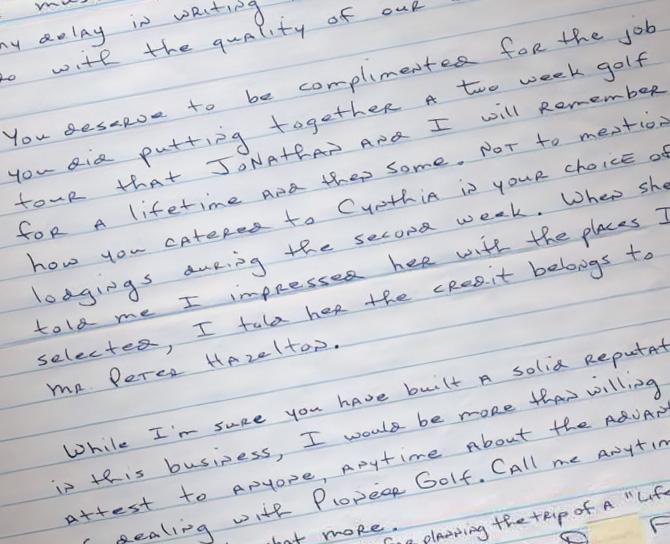 my delay in writing
with the quality of our
You deserve to be complimented for the job
you did putting together a two week golf
tour that Jonathan and I will remember
for a lifetime and then some. Not to mention
how you catered to Cynthia in your choice of
lodgings during the second week. When she
told me I impressed her with the places I
selected, I told her the credit belongs to
Mr. Peter Hazelton.
While I'm sure you have built a solid reputat
in this business, I would be more than willing
attest to anyone, anytime about the advant
dealing with Pioneer Golf. Call me anytim
hat more.
for planning the trip of a "Life